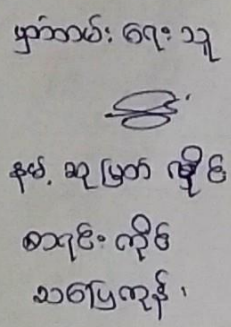 မှတ်တမ်း ရေး သူ
နမ့် ဆု မြတ် လှိုင်
စာရင်း ကိုင်
သပြေကုန်း